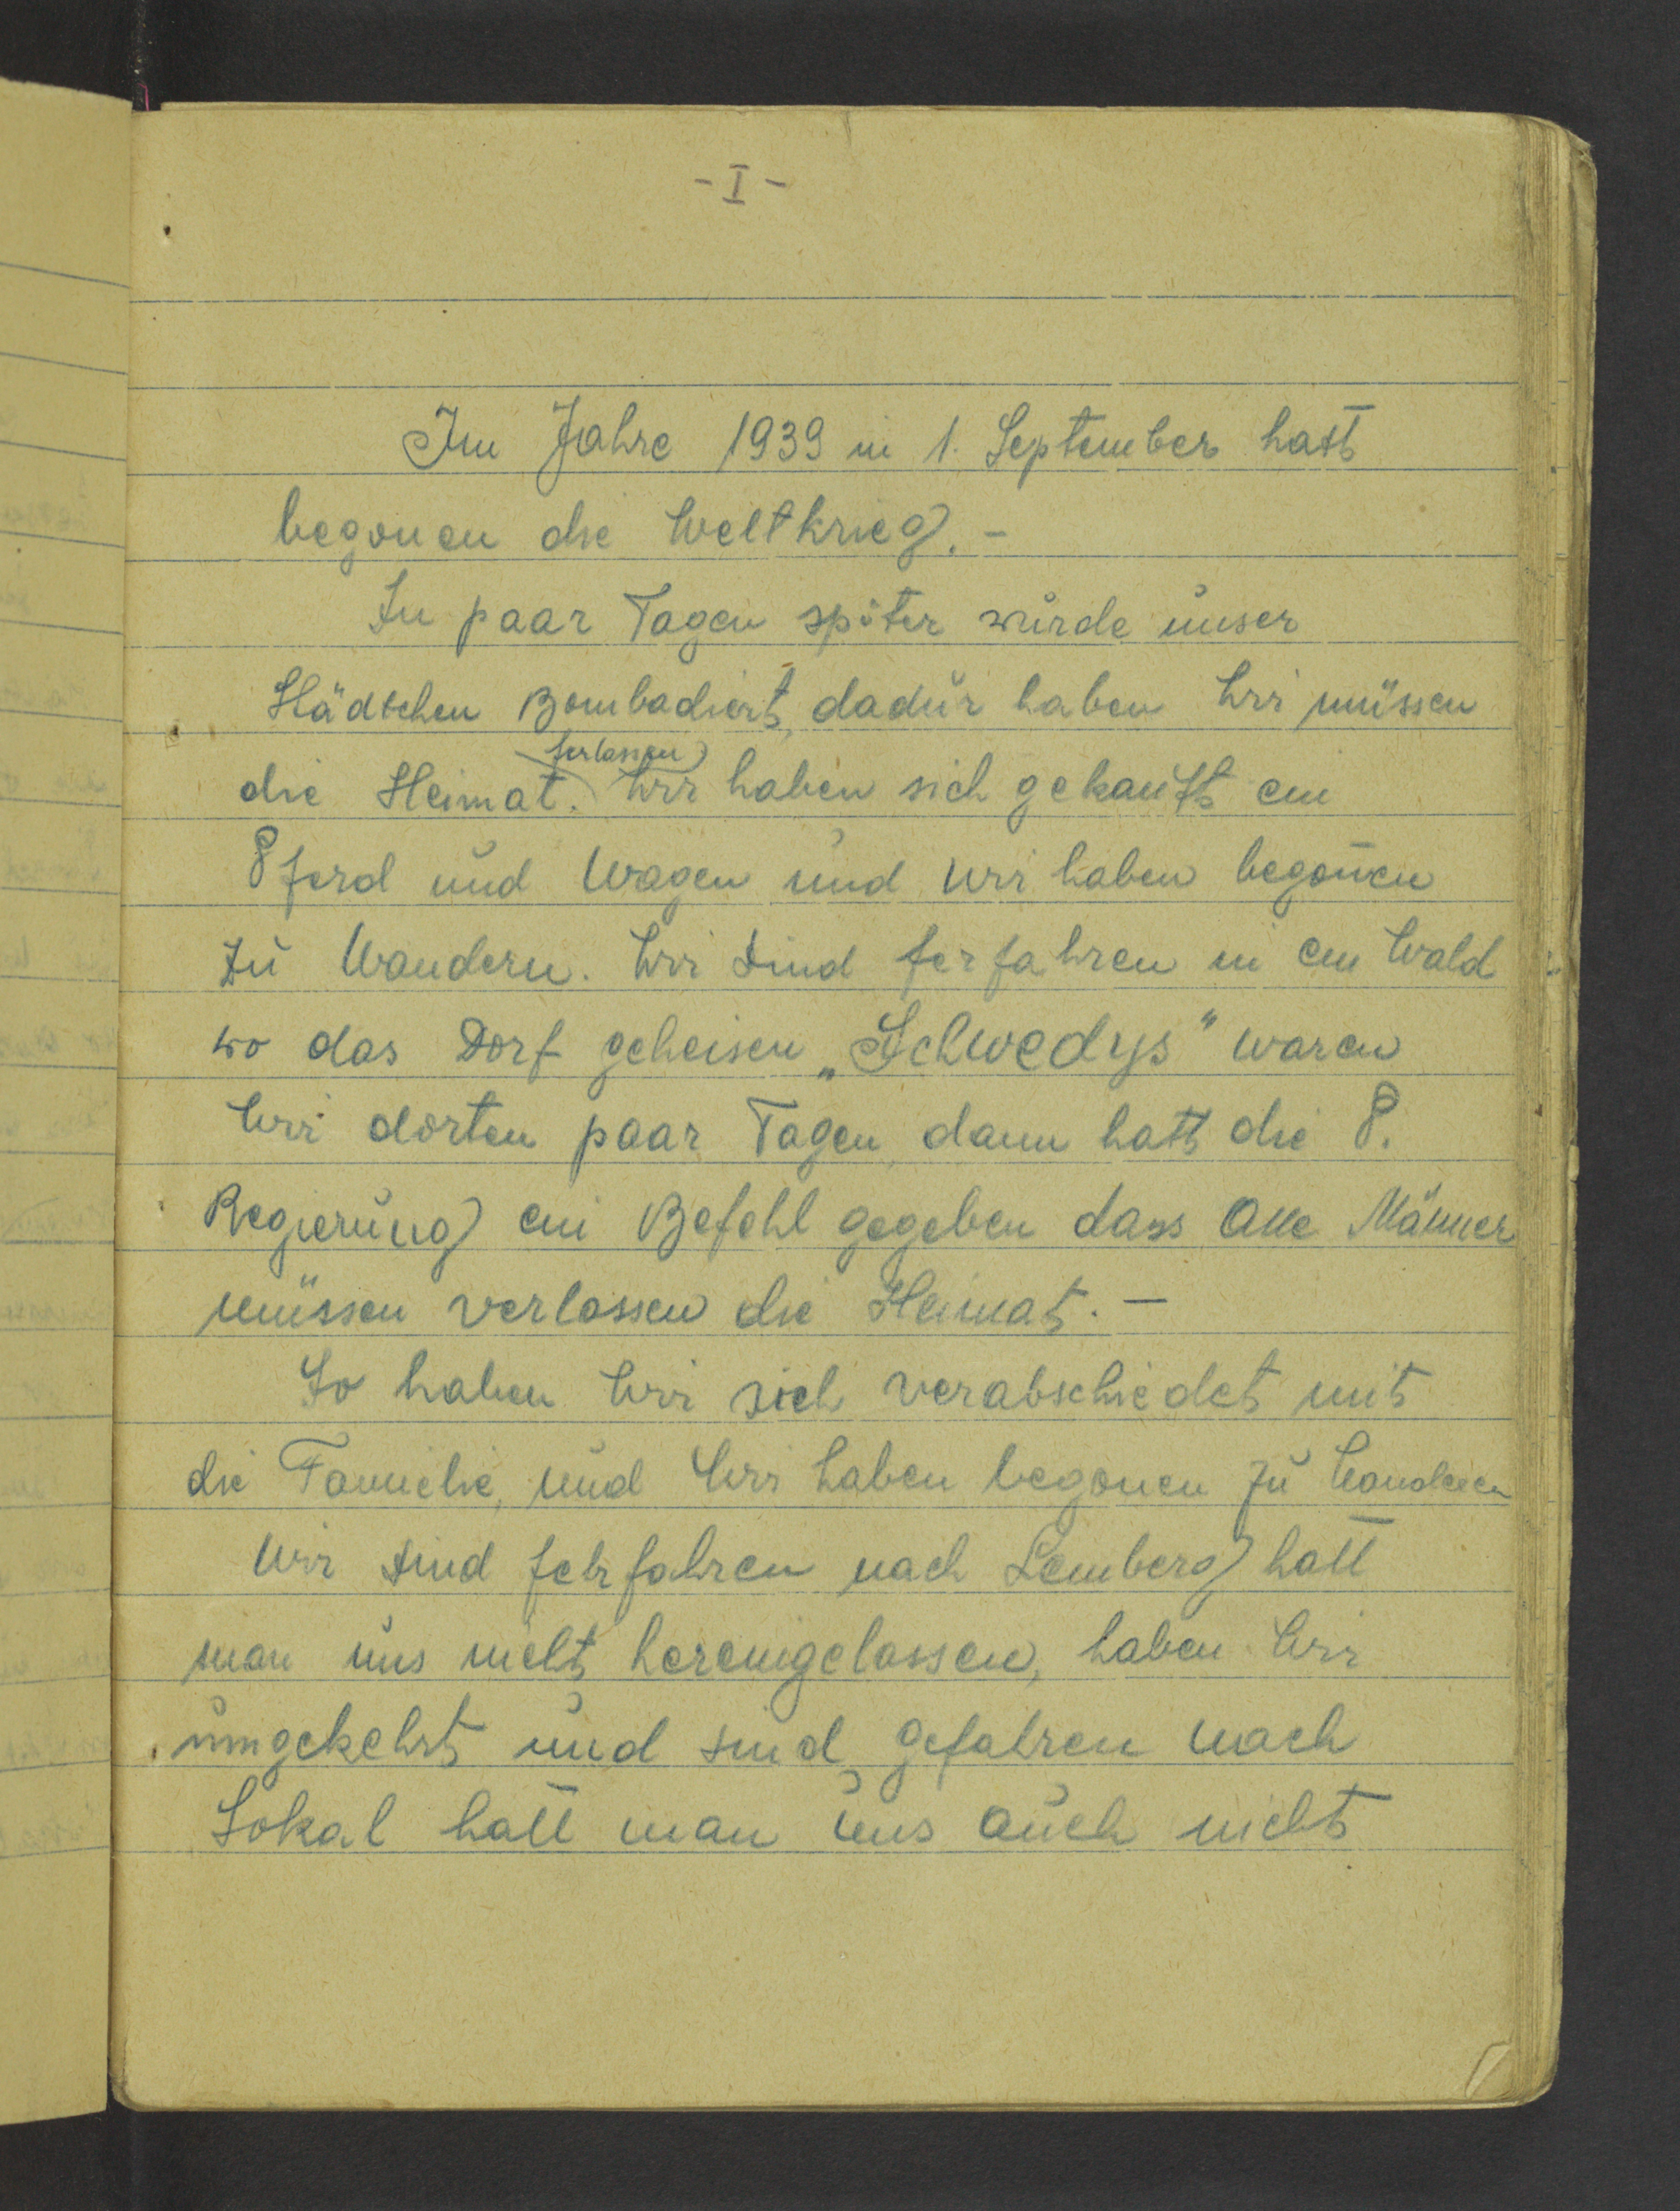 - I -
Im Jahre 1939 in 1. September hatt
begonen die Weltkrieg. -
In paar Tagen später wurde unser
Städtchen Bombadiert, dadur haben Wir müssen
ferlassen
die Heimat. Wir haben sich gekauft ein
Pferd und Wagen und Wir haben begonen
zu Wandern. Wir sind ferfahren in ein Wald
wo das Dorf geheisen „Schwedys" waren
Wir dorten paar Tagen, dann hatt die P.
Regierung ein Befehl gegeben dass Alle Männer
müssen verlassen die Heimat. -
So haben Wir sich verabschiedet mit
die Familie, und Wir haben begonen zu Wandern
Wir sind fehrfahren nach Lemberg hatt
man uns nicht hereingelassen, haben Wir
umgekehrt und sind gefahren nach
Sokal hatt man uns auch nicht